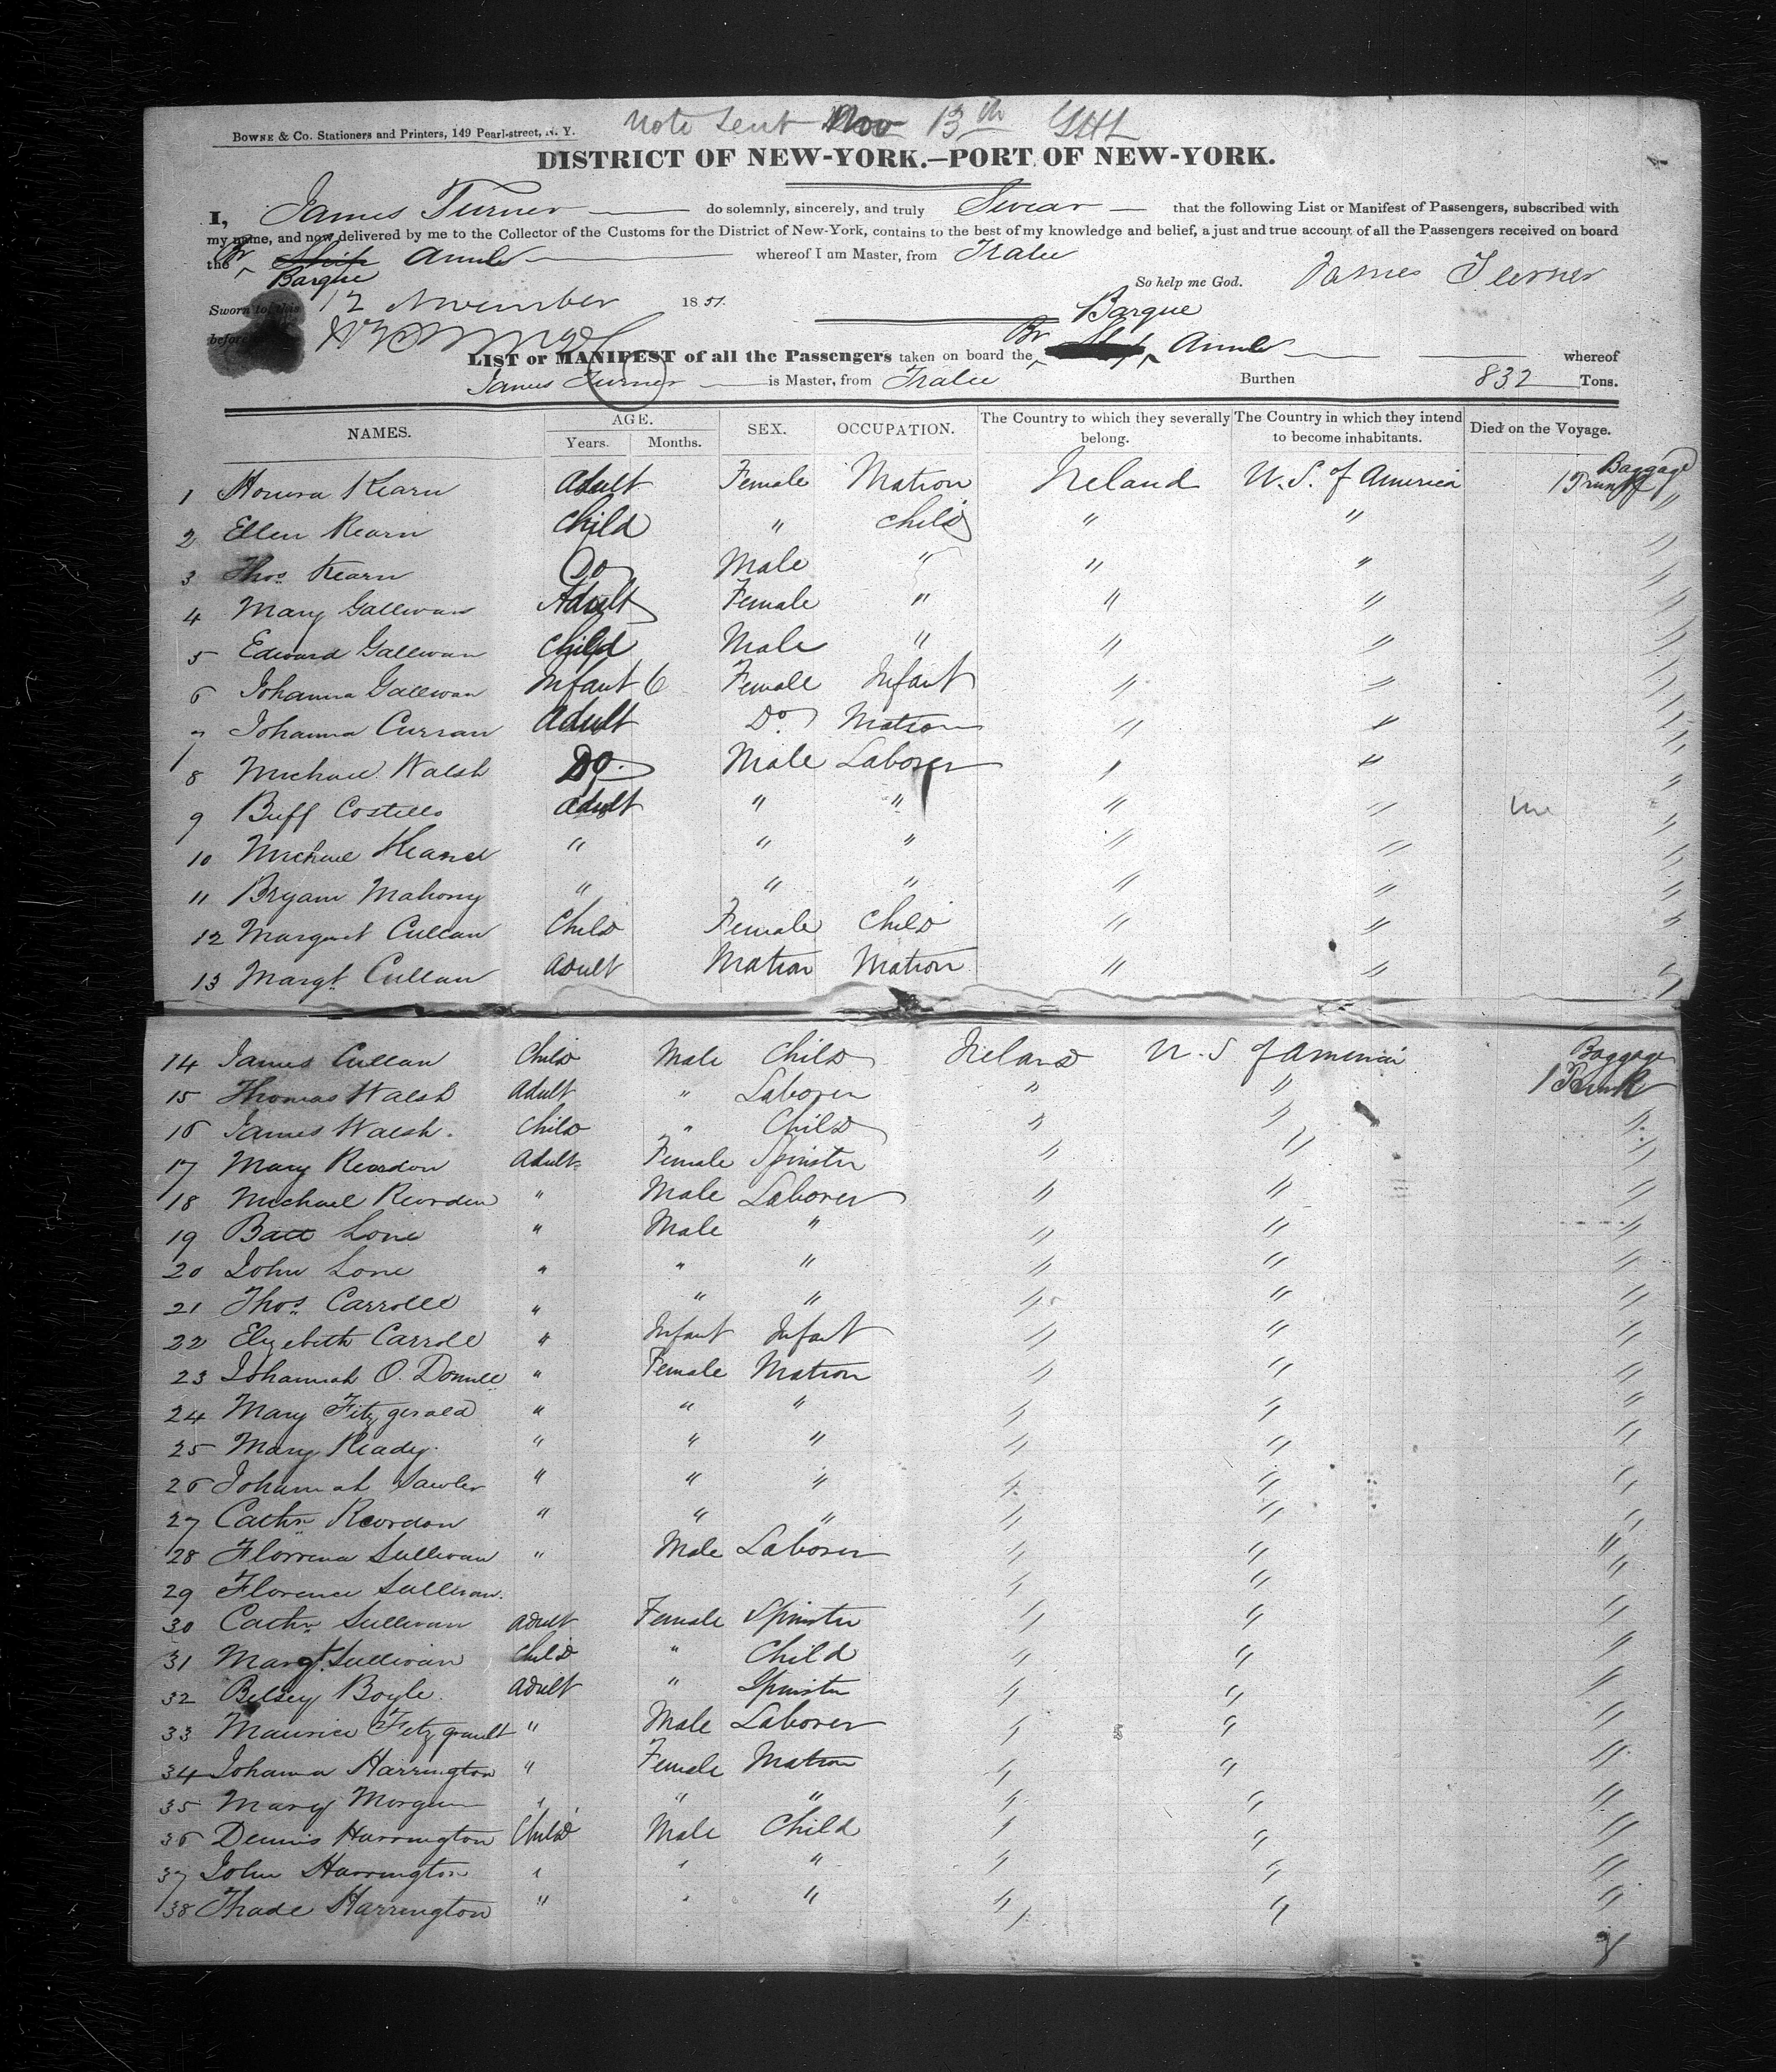 Note Sent Nov 13th
BOWNE & Co. Stationers and Printers, 149 Pearl-street, N. Y.
DISTRICT OF NEW-YORK.—PORT OF NEW-YORK.
I, James Turner do solemnly, sincerely, and truly Swear that the following List or Manifest of Passengers, subscribed with
my name, and now delivered by me to the Collector of the Customs for the District of New-York, contains to the best of my knowledge and belief, a just and true account of all the Passengers received on board
the Br Ship Barque whereof I am Master, from Tralee
So help me God. James Turner
Sworn to this 12 November 1851.
before
LIST or MANIFEST of all the Passengers taken on board the Br Barque whereof
James Turner is Master, from Tralee Burthen 832 Tons.
NAMES. AGE. Years. Months. SEX. OCCUPATION. The Country to which they severally belong. The Country in which they intend to become inhabitants. Died on the Voyage.
1 Honora Kearn Adult Female Matron Ireland U.S. of America 1 Trunk Baggage
2 Ellen Kearn Child " Child " " "
3 Thos. Kearn Do Male " " " "
4 Mary Gallivan Adult Female " " " "
5 Edward Gallivan Child Male " " " "
6 Johanna Gallivan Infant 6 Female Infant " " "
7 Johanna Curran Adult Do. Matron " " "
8 Michael Walsh Do. Male Laborer " " "
9 Buff Costello Adult " " " " "
10 Michael " " " " " "
11 Bryan Mahony " " " " " "
12 Margaret Cullan Child Female Child " " "
13 Margt. Cullan Adult Matron Matron " " "
14 James Cullan Child Male Child Ireland U.S of America Baggage
15 Thomas Walsh Adult " Laborer " " 1 Trunk
16 James Walsh. Child " Child " " "
17 Mary Reardon Adult Female Spinster " " "
18 Michael Reorden " Male Laborer " " "
19 Batt Lone " Male " " " "
20 John Lone " " " " " "
21 Thos. Carroll " " " " " "
22 Elizebeth Carroll " Infant Infant " " "
23 Johannah O. Donnell " Female Matron " " "
24 Mary Fitzgerald " " " " " "
25 Mary Ready. " " " " " "
26 Johannah Lawler " " " " " "
27 Cathn Reordon " " " " " "
28 Florrena Sullivan " Male Laborer " " "
29 Florence Sullivan. " " "
30 Cathn Sullivan Adult Female Spinster " " "
31 Margt. Sullivan Child " Child " " "
32 Betsey Boyle. Adult " Spinster " " "
33 Maurice Fitzgerault " Male Laborer " " "
34 Johanna Harrington " Female Matron " " "
35 Mary Morgan " " " " " "
36 Dennis Harrington Child Male Child " " "
37 John Harrington " " " " " "
38 Thade Harrington " " " " " "